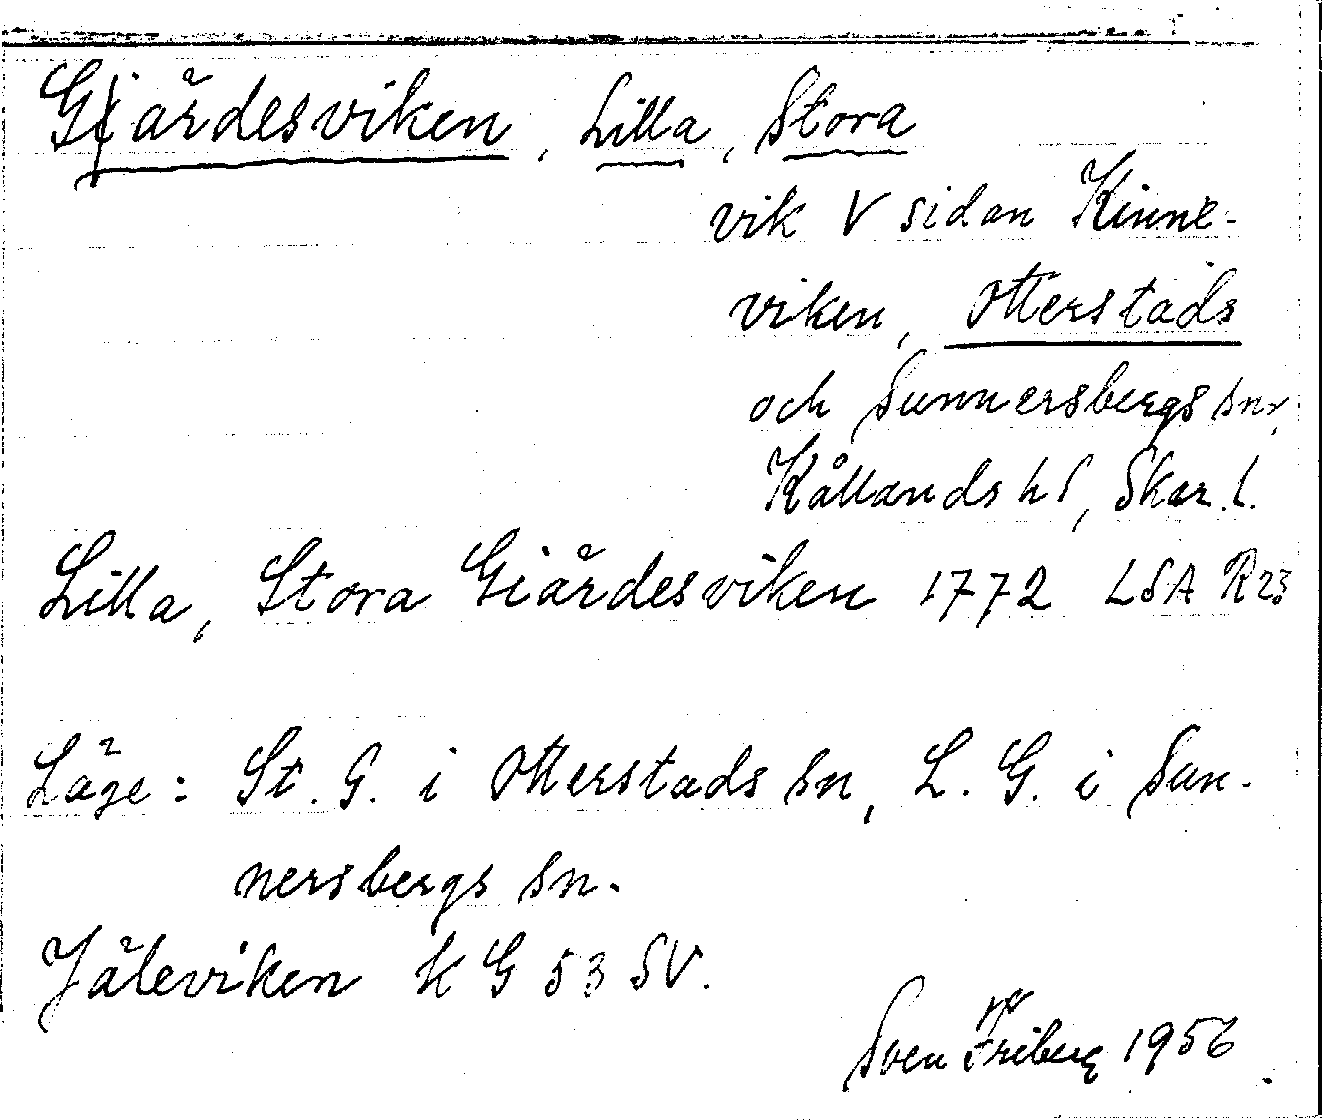 Gjärdesviken, Lilla, Stora
vik V sidan Kinne-
viken, Otterstads
och Sunnersbergs snr,
Kållands hd, Skar. l.
Lilla, Stora Giärdesviken 1772 LSA R23
Läge: St. G. i Otterstads sn, L. G. i Sun-
nersbergs sn.
Jäleviken k G 53 SV.
Sven Friberg 1956